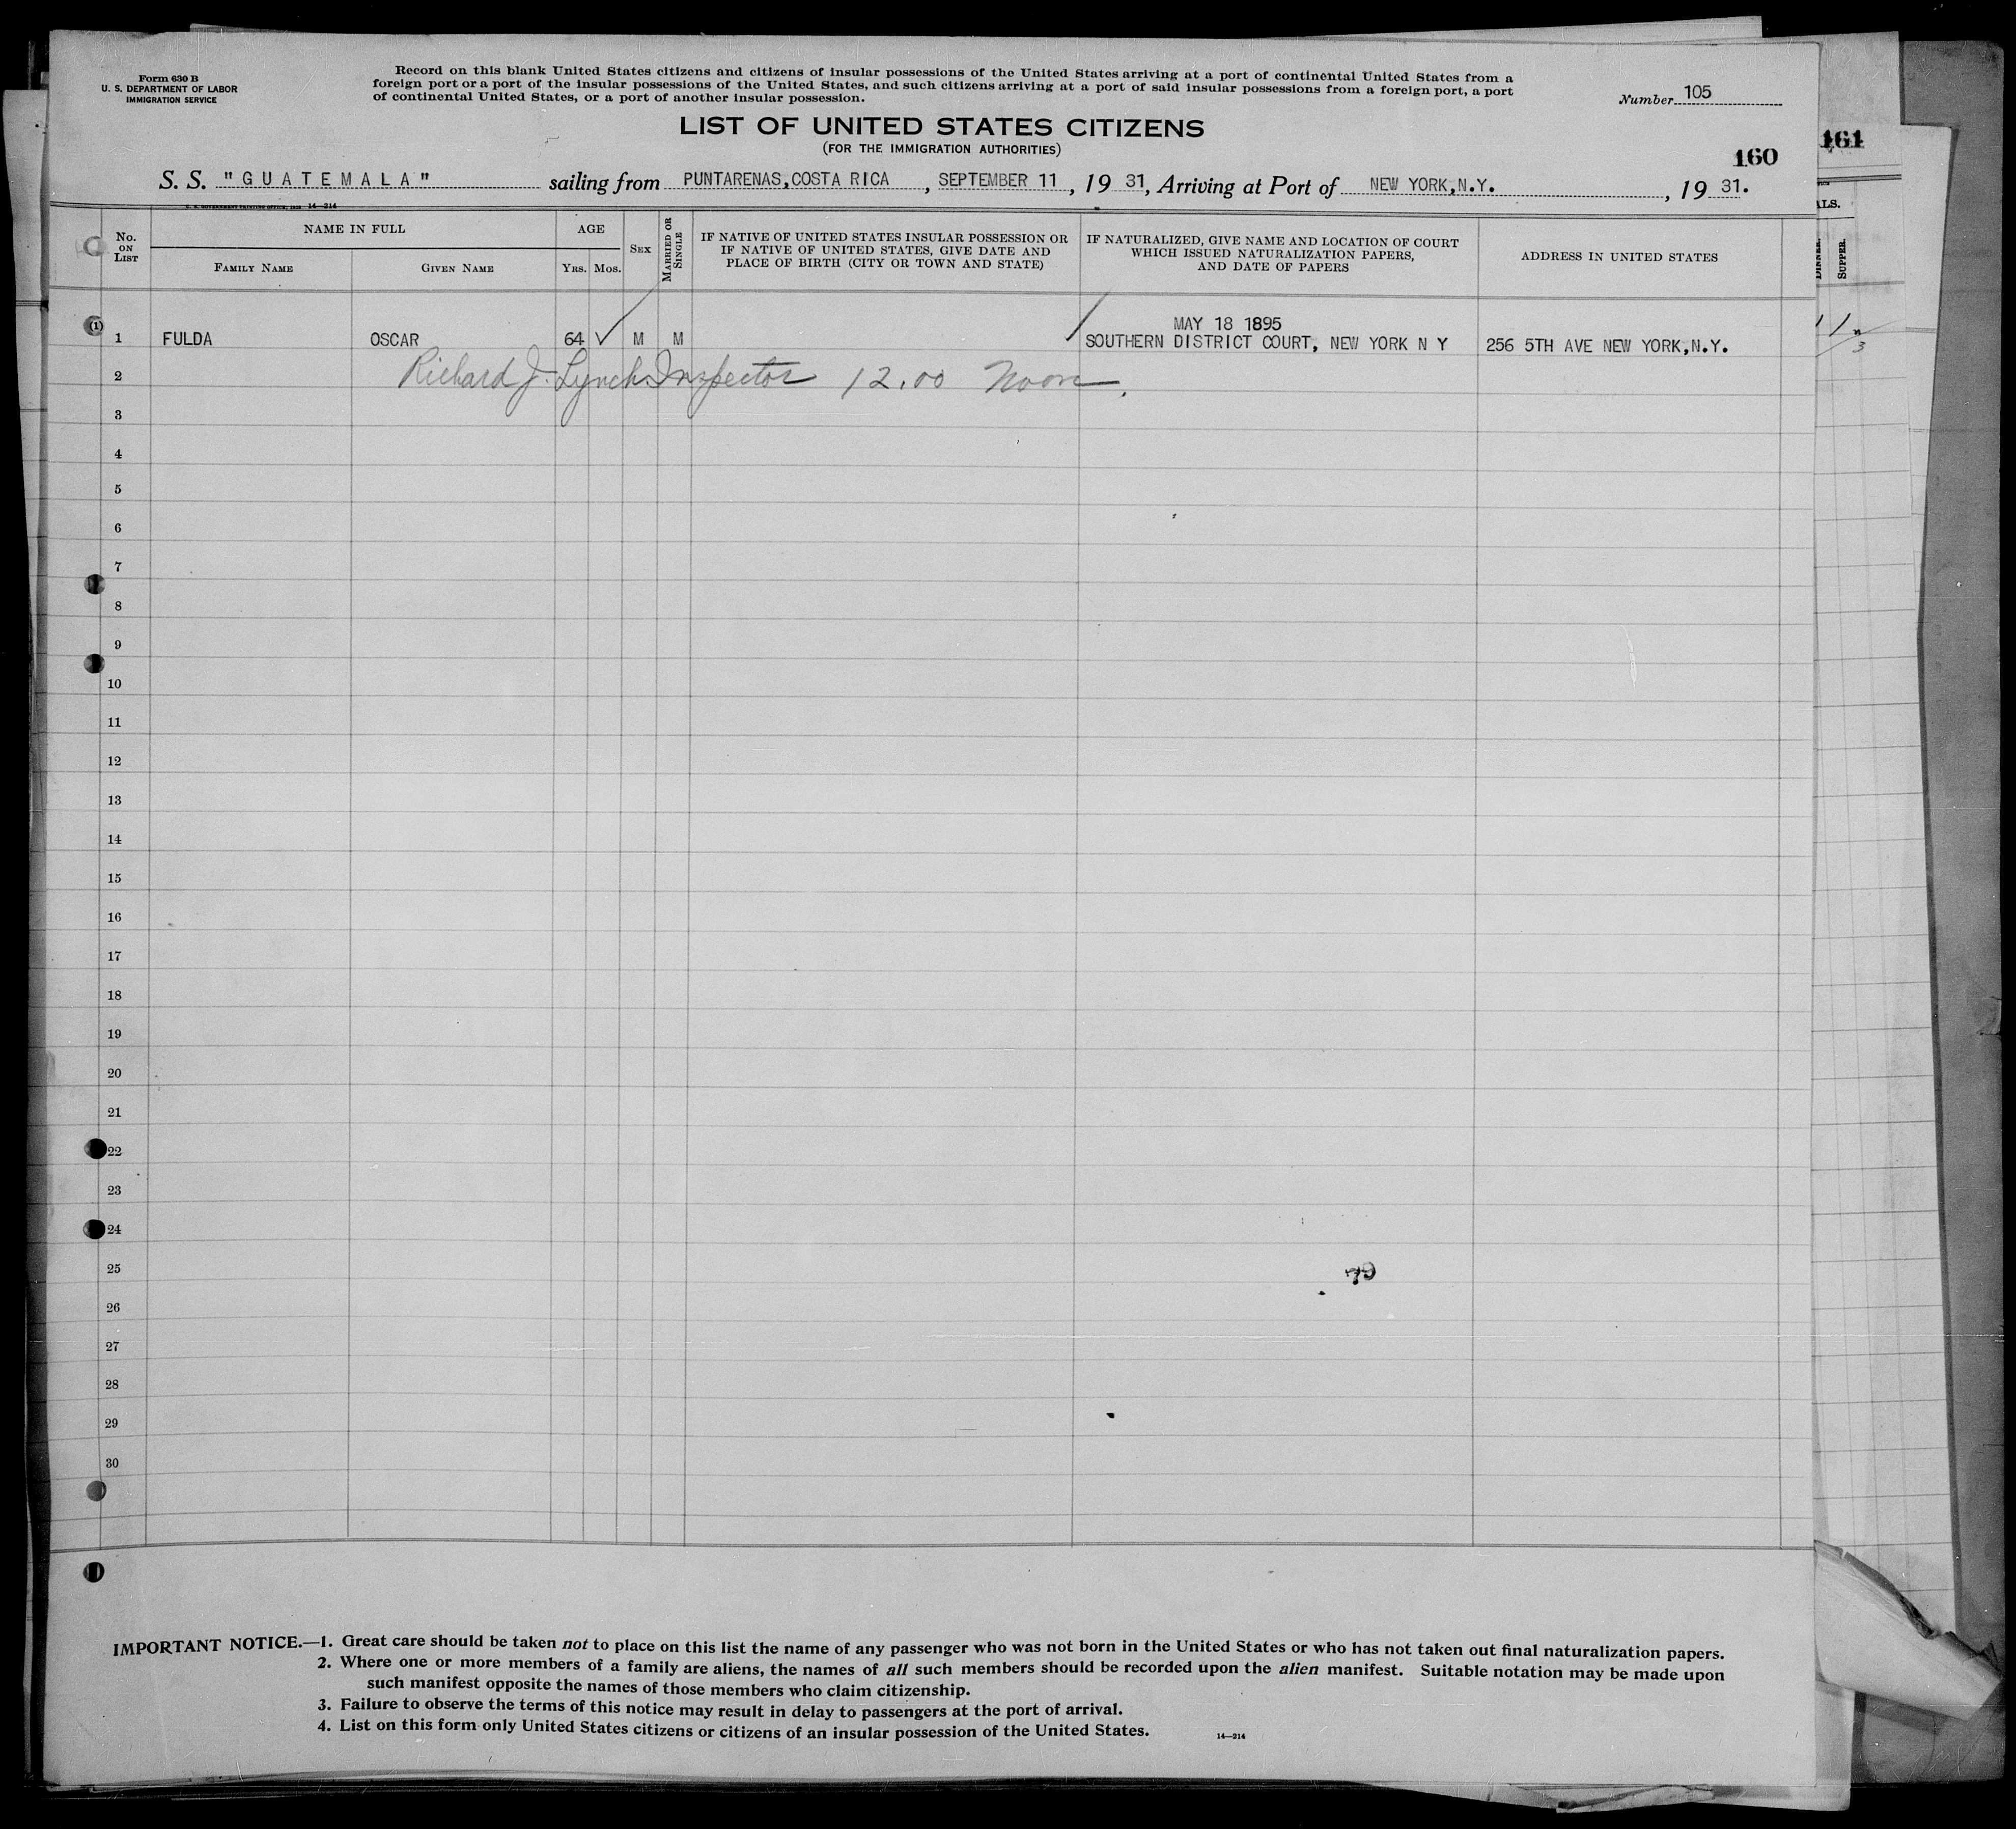 Form 630 B
U. S. DEPARTMENT OF LABOR
IMMIGRATION SERVICE
Record on this blank United States citizens and citizens of insular possessions of the United States arriving at a port of continental United States from a
foreign port or a port of the insular possessions of the United States, and such citizens arriving at a port of said insular possessions from a foreign port, a port
of continental United States, or a port of another insular possession.
Number 105
LIST OF UNITED STATES CITIZENS
(FOR THE IMMIGRATION AUTHORITIES)
160
161
S. S. "GUATEMALA" sailing from PUNTARENAS,COSTA RICA, SEPTEMBER 11, 19 31, Arriving at Port of NEW YORK,N.Y., 19 31.
14—214
No. ON LIST
NAME IN FULL
FAMILY NAME
GIVEN NAME
AGE
YRS. MOS.
SEX
MARRIED OR SINGLE
IF NATIVE OF UNITED STATES INSULAR POSSESSION OR
IF NATIVE OF UNITED STATES, GIVE DATE AND
PLACE OF BIRTH (CITY OR TOWN AND STATE)
IF NATURALIZED, GIVE NAME AND LOCATION OF COURT
WHICH ISSUED NATURALIZATION PAPERS,
AND DATE OF PAPERS
ADDRESS IN UNITED STATES
SUPPER.
(1)
MAY 18 1895
1 FULDA OSCAR 64 M M SOUTHERN DISTRICT COURT, NEW YORK N Y 256 5TH AVE NEW YORK,N.Y.
2 Richard J. Lynch Inspector 12.00 Noon.
3
4
5
6
7
8
9
10
11
12
13
14
15
16
17
18
19
20
21
22
23
24
25
26
27
28
29
30
IMPORTANT NOTICE.—1. Great care should be taken not to place on this list the name of any passenger who was not born in the United States or who has not taken out final naturalization papers.
2. Where one or more members of a family are aliens, the names of all such members should be recorded upon the alien manifest. Suitable notation may be made upon
such manifest opposite the names of those members who claim citizenship.
3. Failure to observe the terms of this notice may result in delay to passengers at the port of arrival.
4. List on this form only United States citizens or citizens of an insular possession of the United States.
14—214